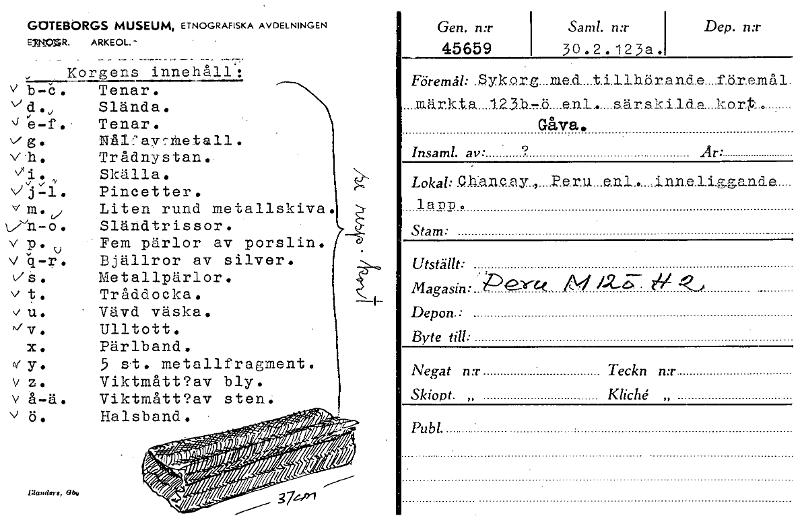 GÖTEBORGS MUSEUM, ETNOGRAFISKA AVDELNINGEN
ETNOGR. ARKEOL.
Korgens innehåll:
b-c. Tenar.
d. Slända.
e-f. Tenar.
g. Nål av metall.
h. Trådnystan.
i. Skälla.
j-l. Pincetter.
m. Liten rund metallskiva.
n-o. Sländtrissor.
p. Fem pärlor av porslin.
q-r. Bjällror av silver.
s. Metallpärlor.
t. Tråddocka.
u. Vävd väska.
v. Ulltott.
x. Pärlband.
y. 5 st. metallfragment.
z. Viktmått?av bly.
å-ä. Viktmått?av sten.
ö. Halsband.
se resp. kort
37cm
Elanders, Gbg
Gen. n:r Saml. n:r Dep. n:r
45659 30.2.123a.
Föremål: Sykorg med tillhörande föremål
märkta 123b-ö enl. särskilda kort.
Gåva.
Insaml. av: ? År:
Lokal: Chancay, Peru enl. inneliggande
lapp.
Stam:
Utställt:
Magasin: Peru M 125 H 2
Depon.:
Byte till:
Negat n:r Teckn n:r
Skiopt. „ Kliché „
Publ.